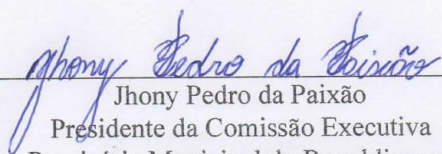 Jhony Pedro da Paixão
Jhony Pedro da Paixão
Presidente da Comissão Executiva